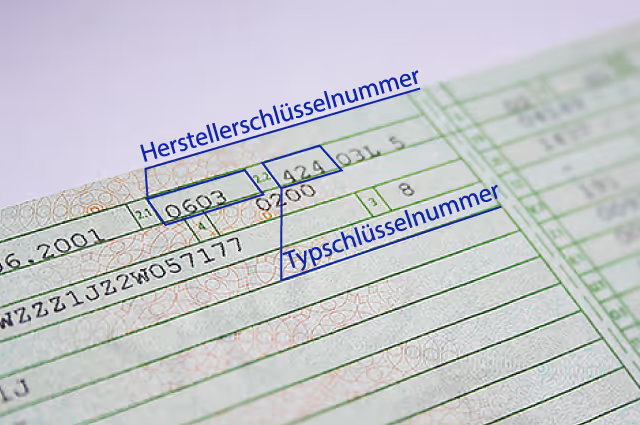 Herstellerschlüsselnummer
06.2001 2.1 0603 2.2 424 031 5
4 0200 3 8
WZZZ1JZ2W057177
Typschlüsselnummer
1J